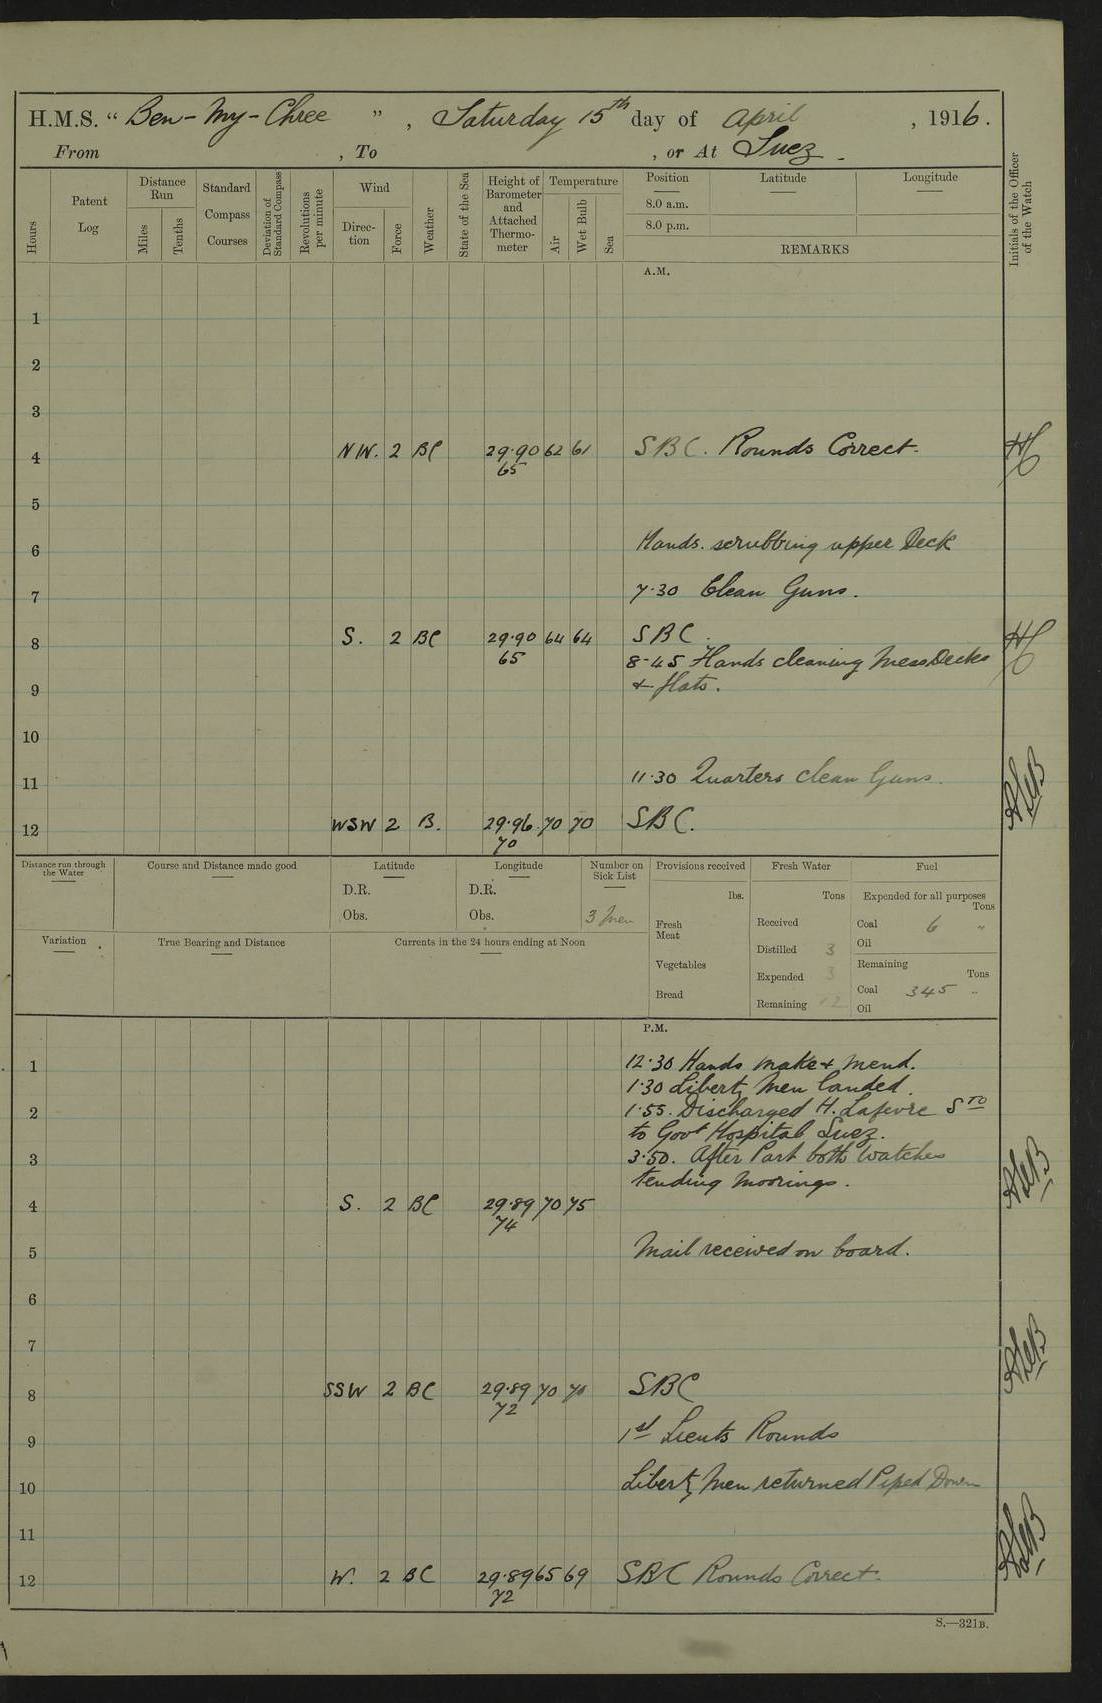 H.M.S. “ Ben-My-Chree ” , Saturday 15th day of April , 1916.
From , To , or At Suez.
Hours
Patent Log
Distance Run
Miles
Tenths
Standard Compass Courses
Deviation of Standard Compass
Revolutions per minute
Wind
Direc-tion
Force
Weather
State of the Sea
Height of Barometer and Attached Thermo-meter
Temperature
Air
Wet Bulb
Sea
Position
8.0 a.m.
8.0 p.m.
Latitude
Longitude
REMARKS
Initials of the Officer of the Watch
A.M.
1
2
3
4 NW. 2 BC 29.90 62 61 SBC. Rounds Correct.
65
5
6 Hands. scrubbing upper Deck
7 7.30 Clean Guns.
8 S. 2 BC 29.90 64 64 SBC.
65 8-45 Hands cleaning Mess Decks
9 & flats.
10
11 11.30 Quarters clean Guns.
12 WSW 2 B. 29.96 70 70 SBC.
70
Distance run through the Water
Course and Distance made good
Latitude
D.R.
Obs.
Longitude
D.R.
Obs.
Number on Sick List
3 Men
Provisions received
lbs.
Fresh Meat
Vegetables
Bread
Fresh Water
Tons
Received
Distilled 3
Expended 3
Remaining
Fuel
Expended for all purposes
Tons
Coal 6 "
Oil
Remaining
Tons
Coal 345 "
Oil
Variation
True Bearing and Distance
Currents in the 24 hours ending at Noon
P.M.
1 12.30 Hands make & mend.
1.30 Liberty Men landed.
2 1.55. Discharged H. Lafevre Sto
to Govt Hospital Suez.
3 3.50. After Part both Watches
tending moorings.
4 S. 2 BC 29.89 70 75
74
5 Mail received on board.
6
7
8 SSW 2 BC 29.89 70 70 SBC
72
9 1st Lieuts Rounds
10 Liberty Men returned Piped Down
11
12 W. 2 BC 29.89 65 69 SBC Rounds Correct.
72
S.—321B.